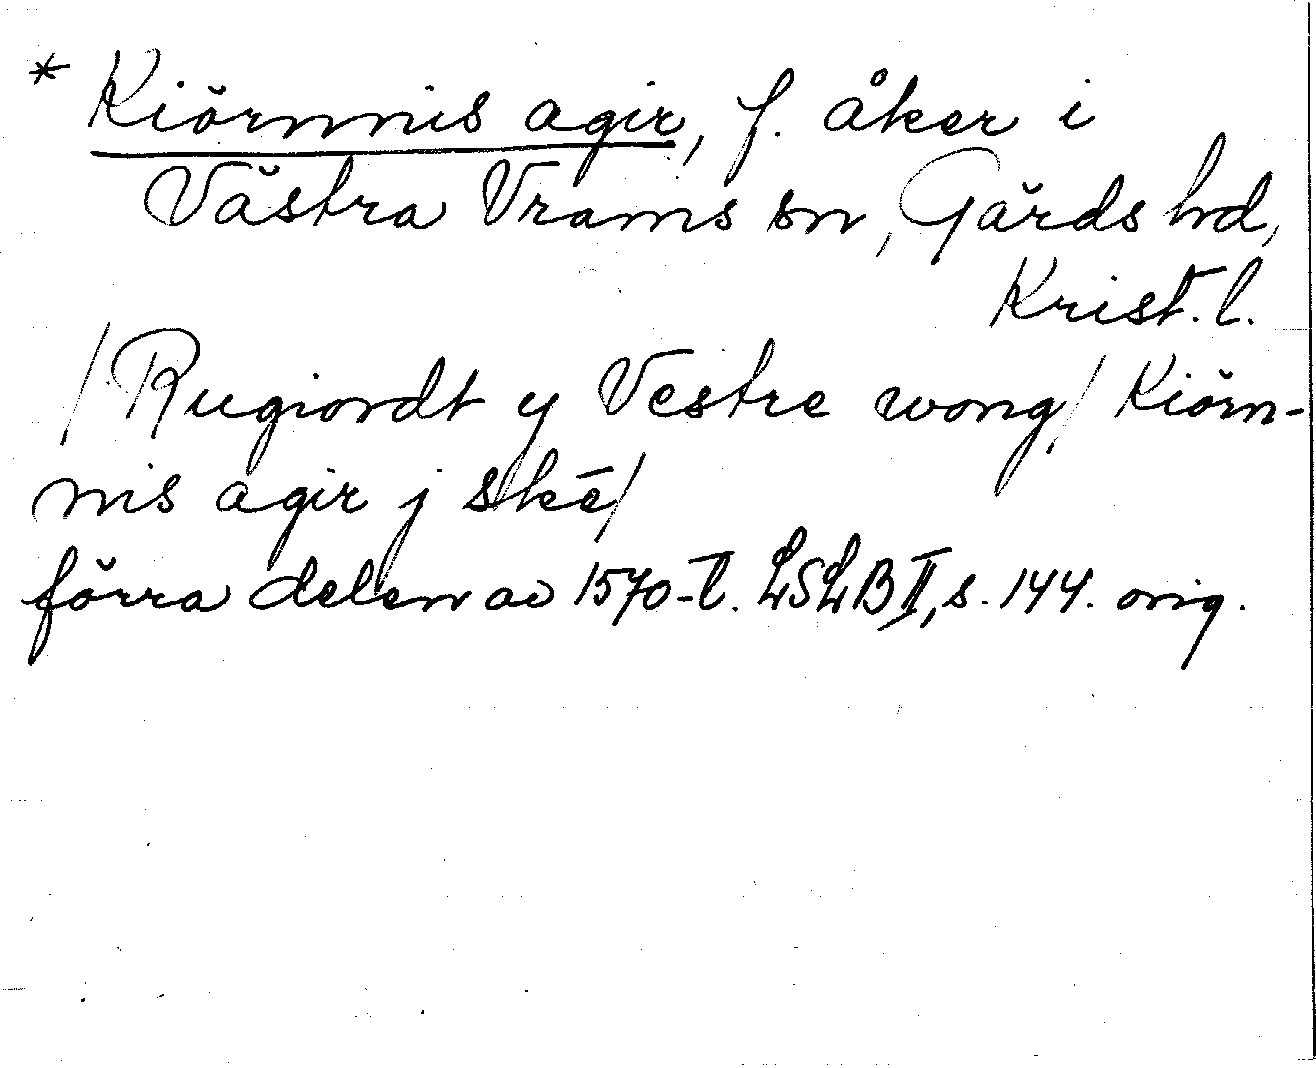 * Kiörnnis agir, f. åker i
Västra Vrams sn, Gärds hd,
Krist. l.
/Rugiordt y Vestre wong/ Kiörn-
nis agir j skē/
förra delen av 1570-t. LSLB II, s. 144. orig.